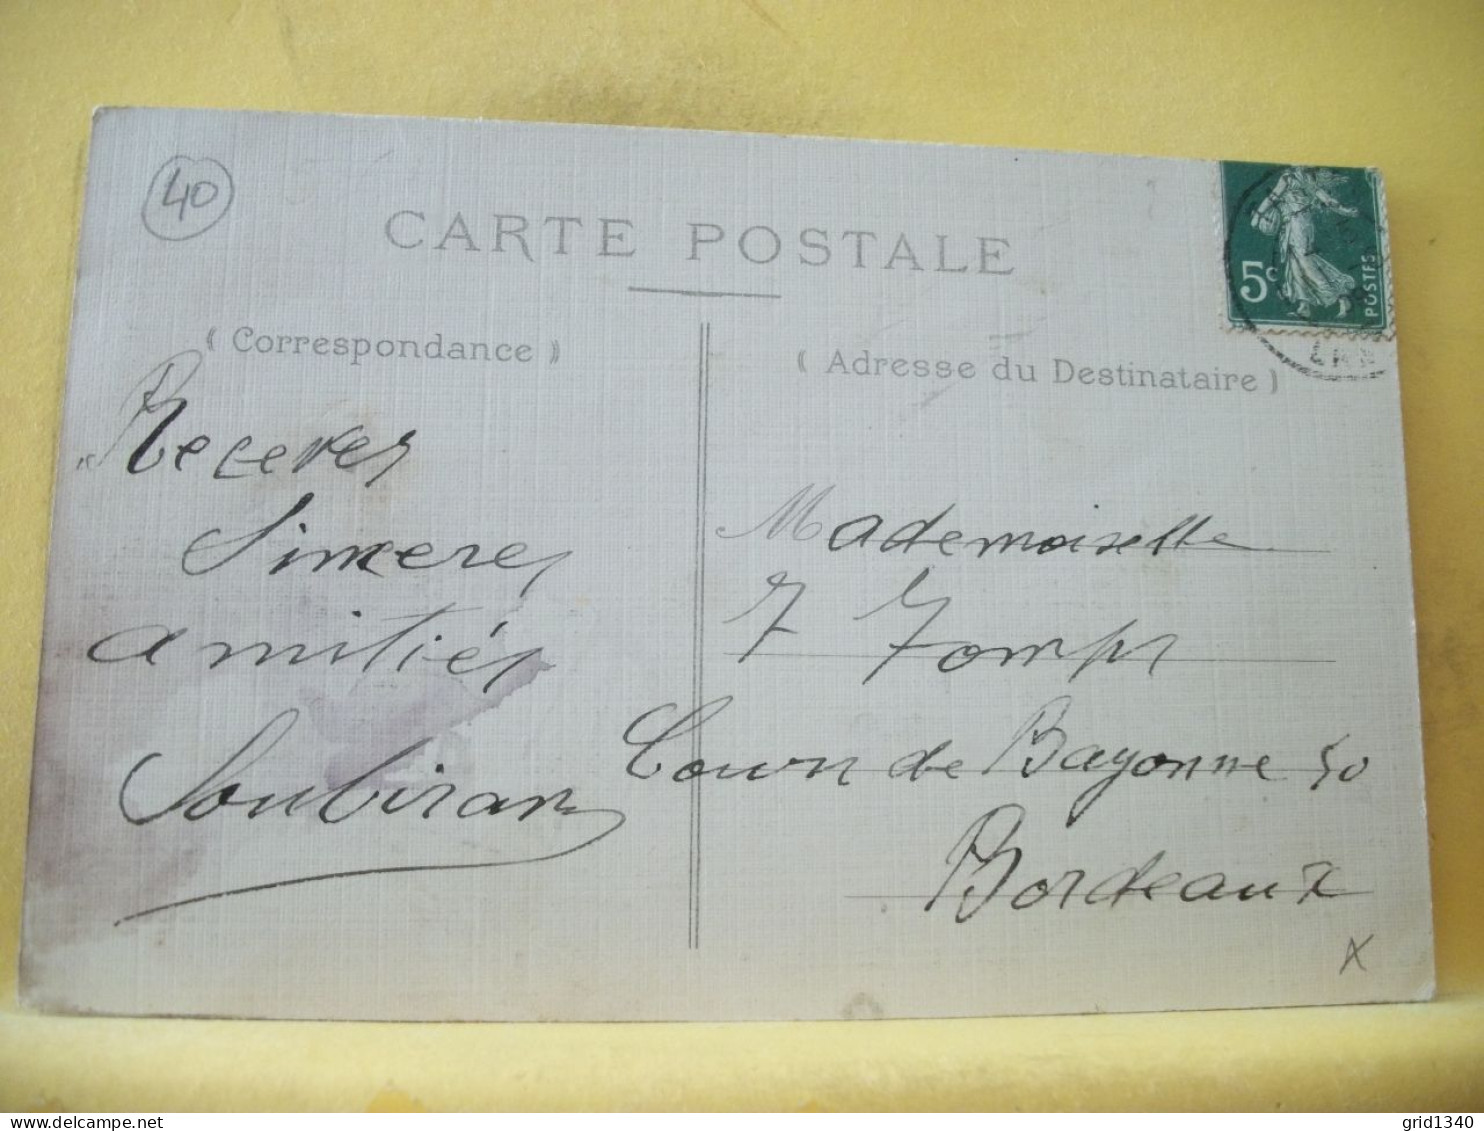 40
CARTE POSTALE
( Correspondance )
( Adresse du Destinataire )
5c
POSTES
Recevez
Sinceres
amitiés
Soubiran
Mademoiselle
Cours de Bayonne 50
Bordeaux
X
delcampe.net
grid1340